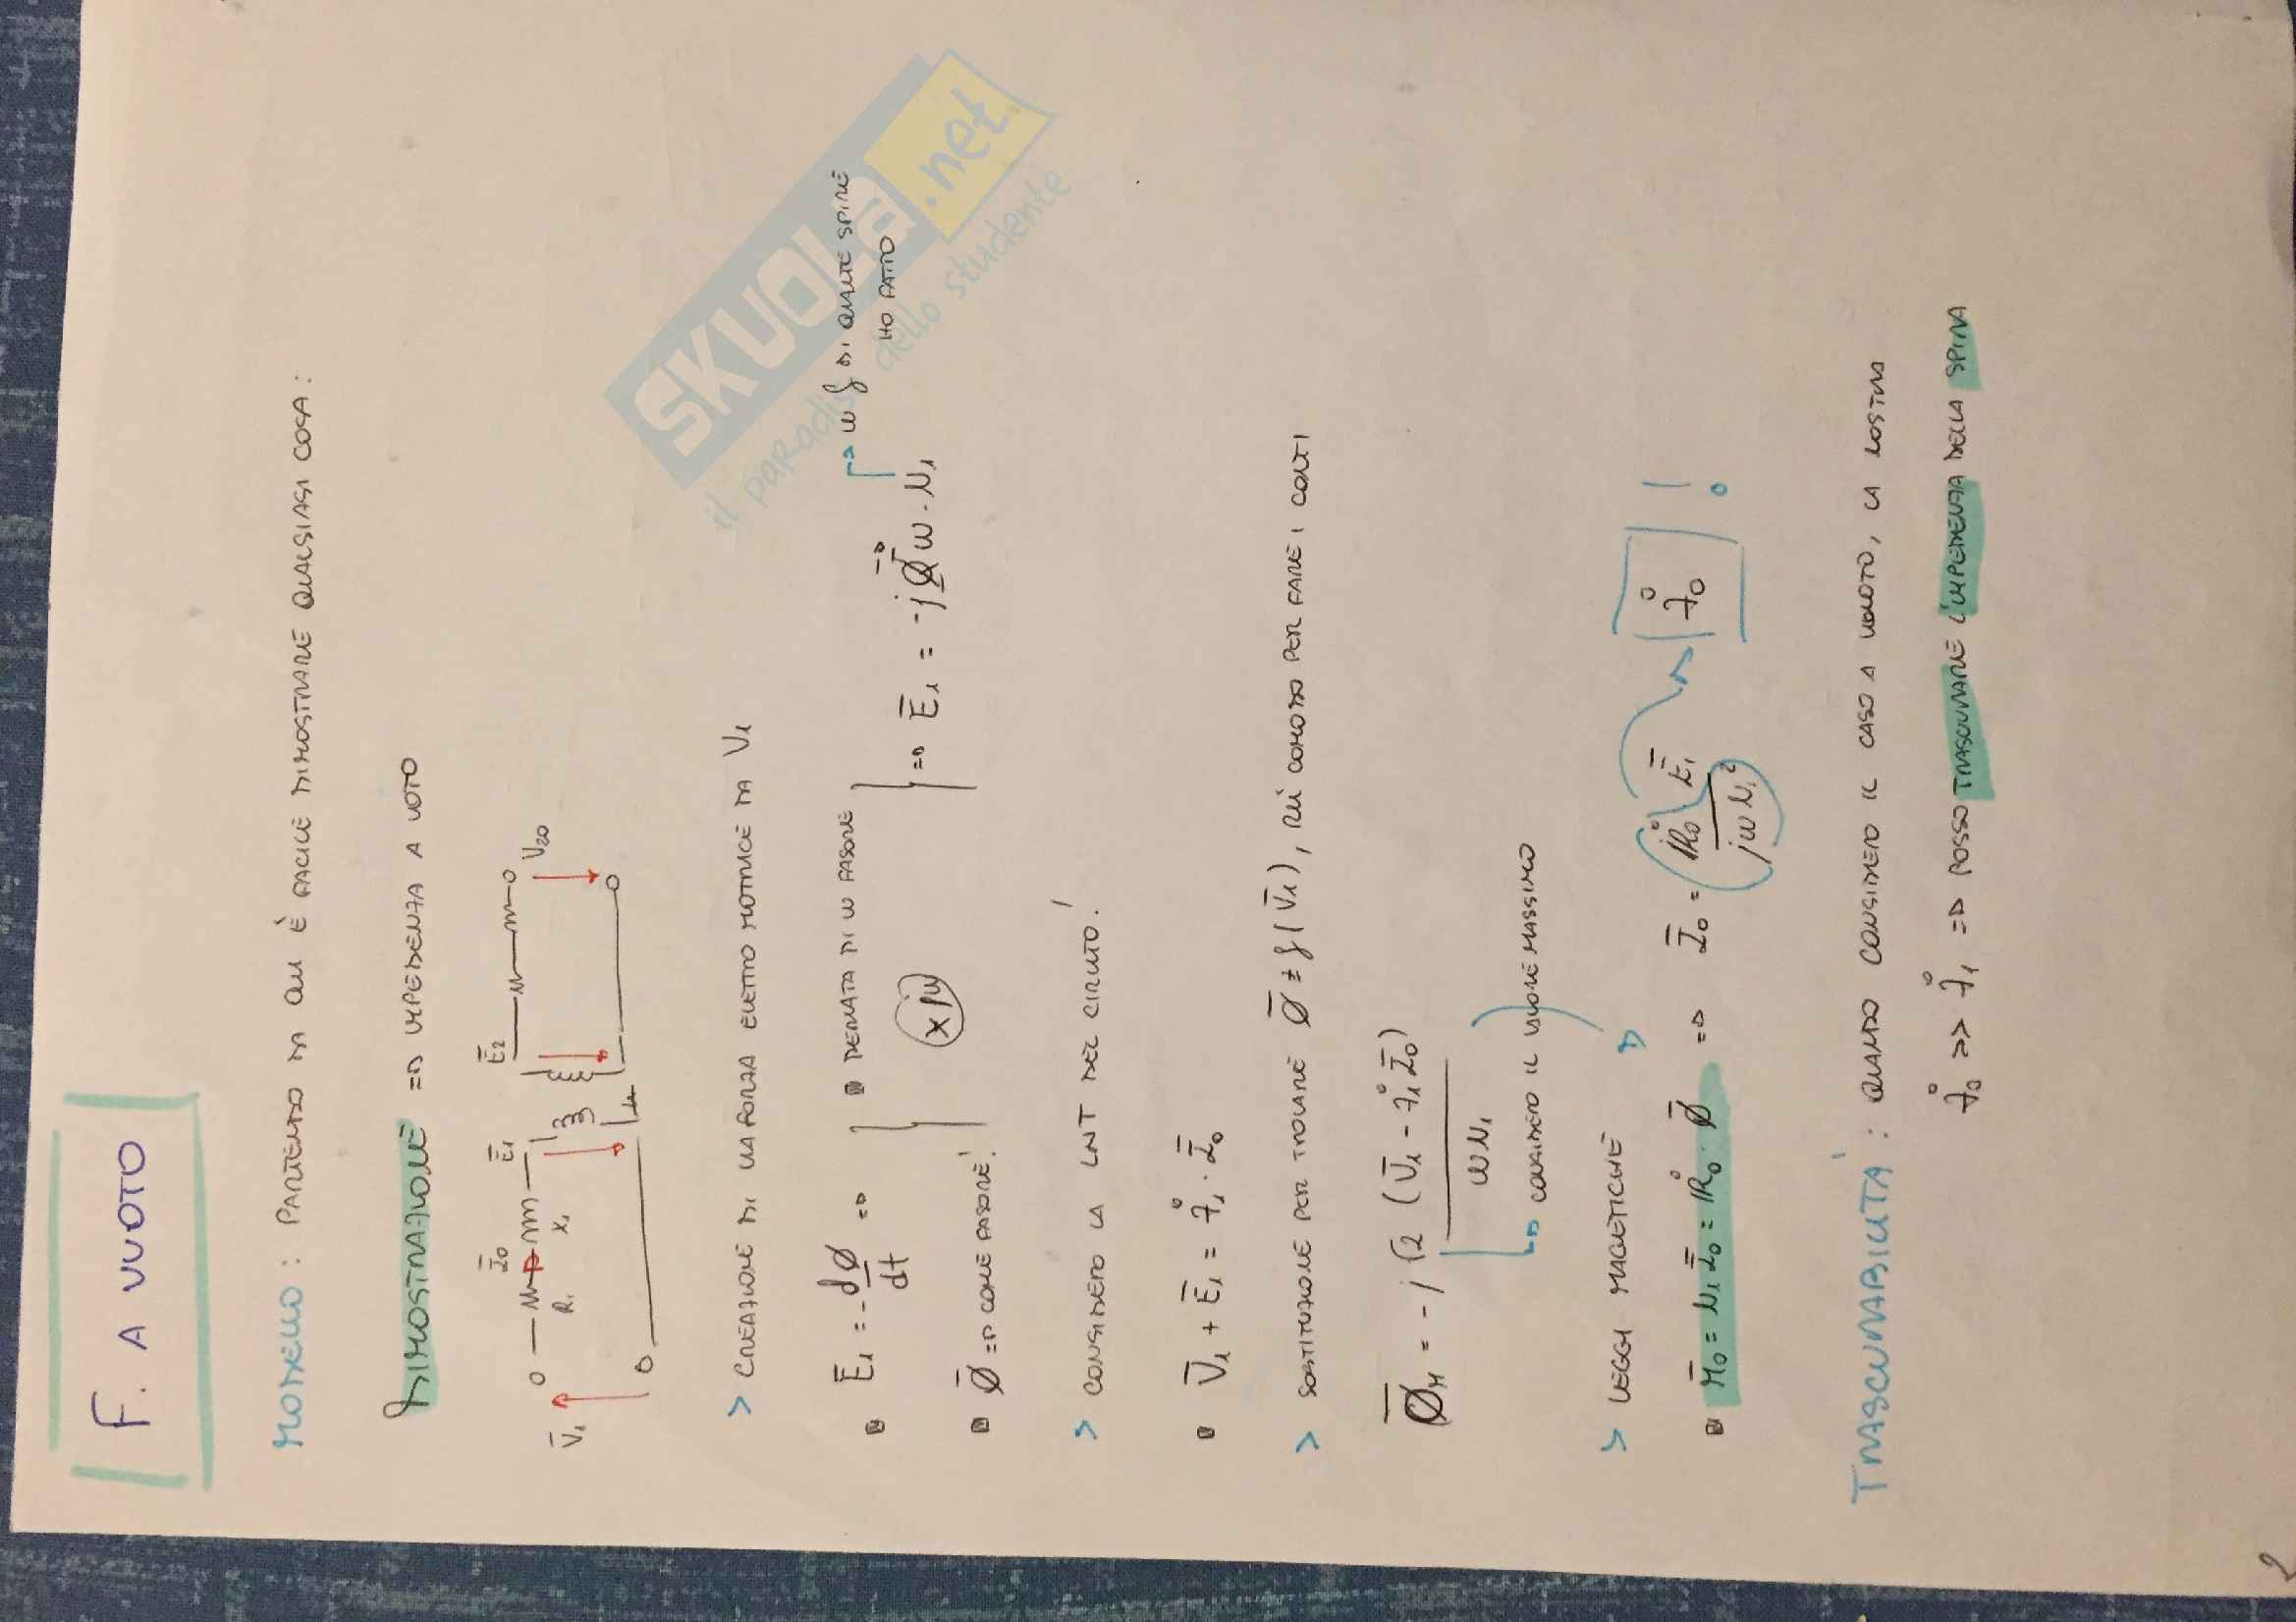 F. A VUOTO
MODELLO : PARTENDO DA QUI È FACILE DIMOSTRARE QUALSIASI COSA :
DIMOSTRAZIONE => IMPEDENZA A VOTO
V̄₁ Ī₀ R₁ X₁ Ē₁ Ē₂ V₂₀
> CREAZIONE DI UNA FORZA ELETTRO MOTRICE DA V₁
Ē₁ = - dØ/dt => DERIVATA DI UN FASORE
Ø̄ => COME FASORE! (x jω) => Ē₁ = -jØ̄ω · N₁ → IN f DI QUANTE SPIRE HO FATTO
> CONSIDERO LA LNT DEL CIRCUITO!
V̄₁ + Ē₁ = Ż₁ · Ī₀
> SOSTITUZIONE PER TROVARE Ø̄ = f(V̄₁), PIÙ COMODO PER FARE I CONTI
Ø̄ₘ = -j √2 (V̄₁ - Ż₁Ī₀) / ωN₁
→ CONSIDERO IL VALORE MASSIMO
> LEGGI MAGNETICHE
M̄₀ = N₁Ī₀ = Ṙ₀ · Ø̄ => Ī₀ = Ṙ₀ Ē₁ / jωN₁² → Ż₀ !
TRASCURABILITÀ : QUANDO CONSIDERO IL CASO A VUOTO, LA NOSTRA
Ż₀ >> Ż₁ => POSSO TRASCURARE L'IMPEDENZA DELLA SPIRA
2
SKUOLA.net
il paradiso dello studente